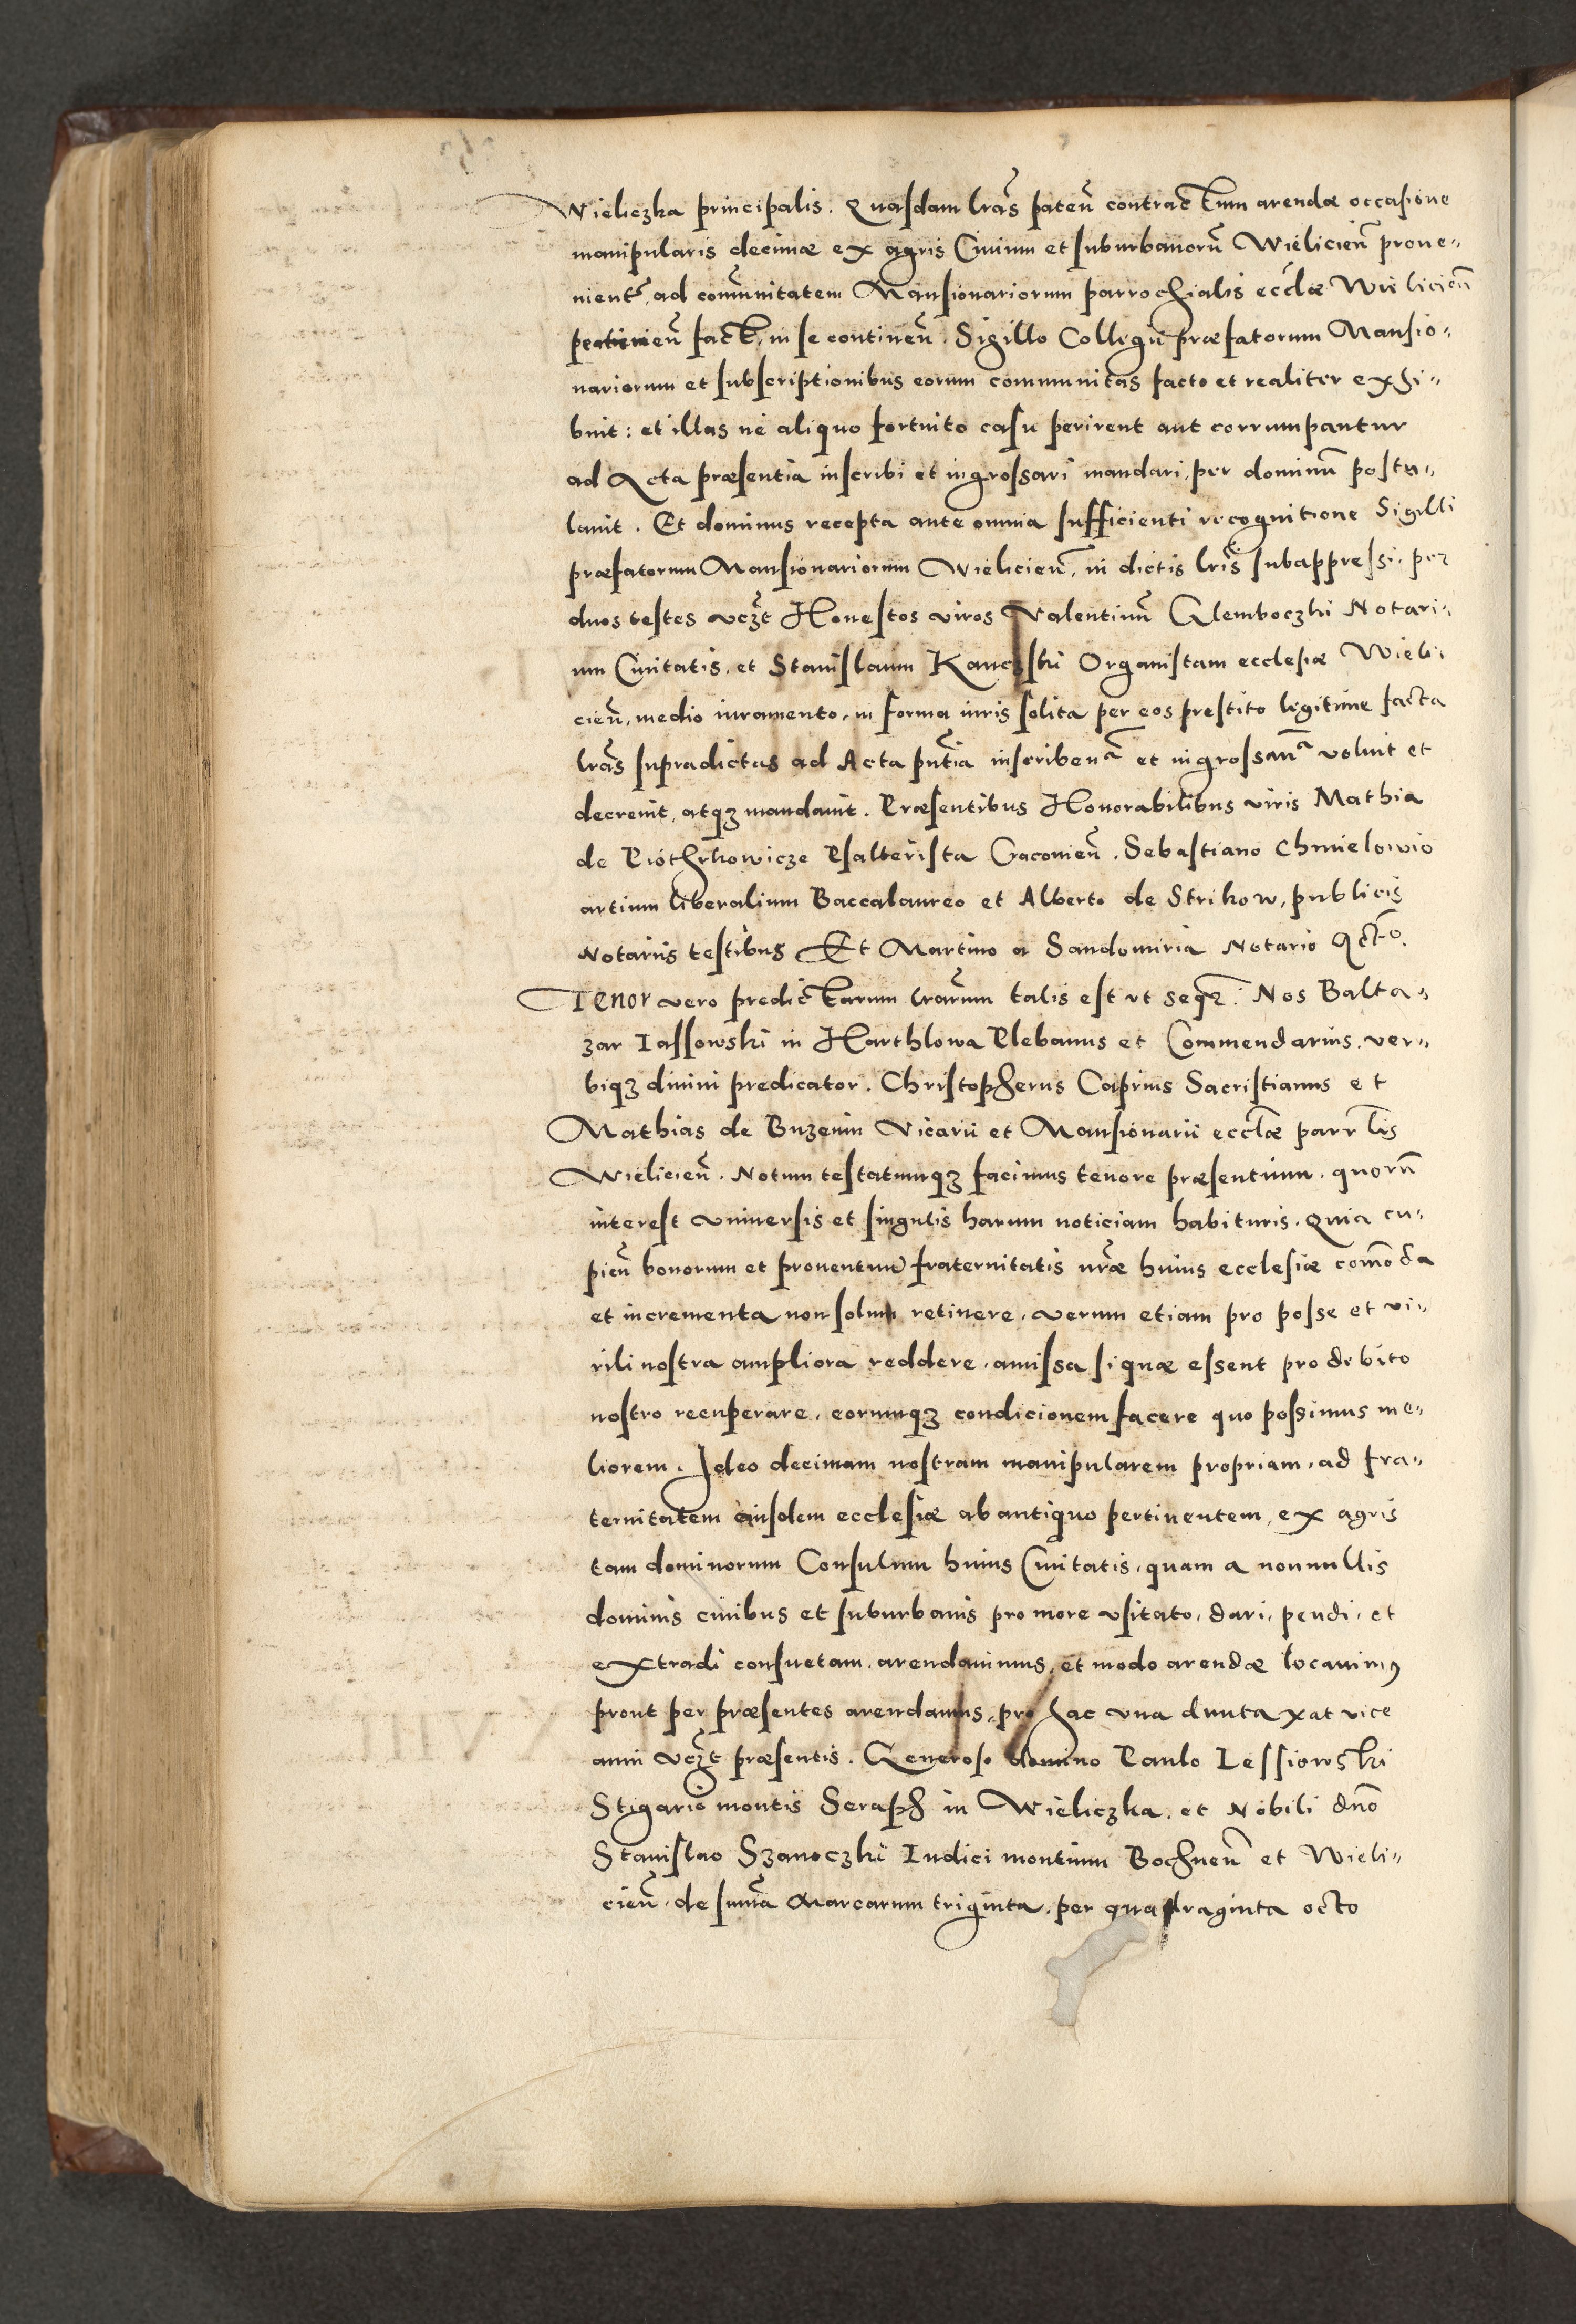 Wieliczka principalis. Quasdam lras pateñ contractum arendæ occasione
manipularis decimæ ex agris Civium et suburbanorũ Wielicieñ prove„
nient, ad comũnitatem Mansionariorum parrochialis ecclæ Wielicieñ
pertinieñ fact, in se contineñ. Sigillo Collegii præfatorum Mansio„
nariorum et subscriptionibus eorum communitas facto et realiter exhi„
buit: et illas ne aliquo fortuito casu perirent aut corrumpantur
ad Acta præsentia inscribi et ingrossari mandari, per dominũ postu„
lauit. Et dominus recepta ante omnia sufficienti recognitione Sigilli
præfatorum Mansionariorum Wielicieñ, in dictis lris subappressi, per
duos testes vczt Honestos viros Valentinũ Glemboczki Notari„
um Civitatis, et Stanislaum Organistam ecclesiæ Wieli„
cieñ, medio iuramento, in forma iuris solita per eos prestito legitime facta
lras supradictas ad Acta pñtia inscribenᵃ et ingrossanᵃ voluit et
decreuit, atqʒ mandauit. Præsentibus Honorabilibus viris Mathia
de Piothrkowicze Psalterista Cracouieñ. Sebastiano Chmielowio
artium liberalium Baccalaureo et Alberto de Strikow, publicis
Notariis testibus Et Martino a Sandomiria Notario
Tenor vero predictarum lrarum talis est vt sequr. Nos Balta„
zar Iassowski in Harthlowa Plebanus et Commendarius, ver„
biqʒ divini predicator. Christopherus Caprius Sacristianus et
Mathias de Buzenin Vicarii et Mansionarii ecclæ parrlis
Wielicieñ. Notum testatumqʒ facimus tenore præsentium, quorũ
interest vniuersis et singulis harum noticiam habituris. Quia cu„
pieñ bonorum et prouentuũ fraternitatis nræ huius ecclesiæ com̃oda
et incrementa non solum retinere, verum etiam pro posse et vi„
rili nostra ampliora reddere, amissa si quæ essent pro debito
nostro recuperare, eorumqʒ condicionem facere quo possimus me„
liorem. Ideo decimam nostram manipularem propriam, ad fra„
ternitatem eiusdem ecclesiæ ab antiquo pertinentem, ex agris
tam dominorum Consulum huius Civitatis, quam a nonnullis
dominis ciuibus et suburbanis pro more vsitato, dari, pendi, et
extradi consuetam, arendauimus, et modo arendæ locauimꝰ
prout per præsentes arendamus, pro hac vna duntaxat vice
anni vczt præsentis. Generoso domino Paulo Lessiowski
Stigario montis Seraph in Wieliczka, et Nobili dno
Stanislao Szanoczki Iudici montium Bochneñ et Wieli„
cieñ. de sum̃a Marcarum triginta, per quadraginta octo